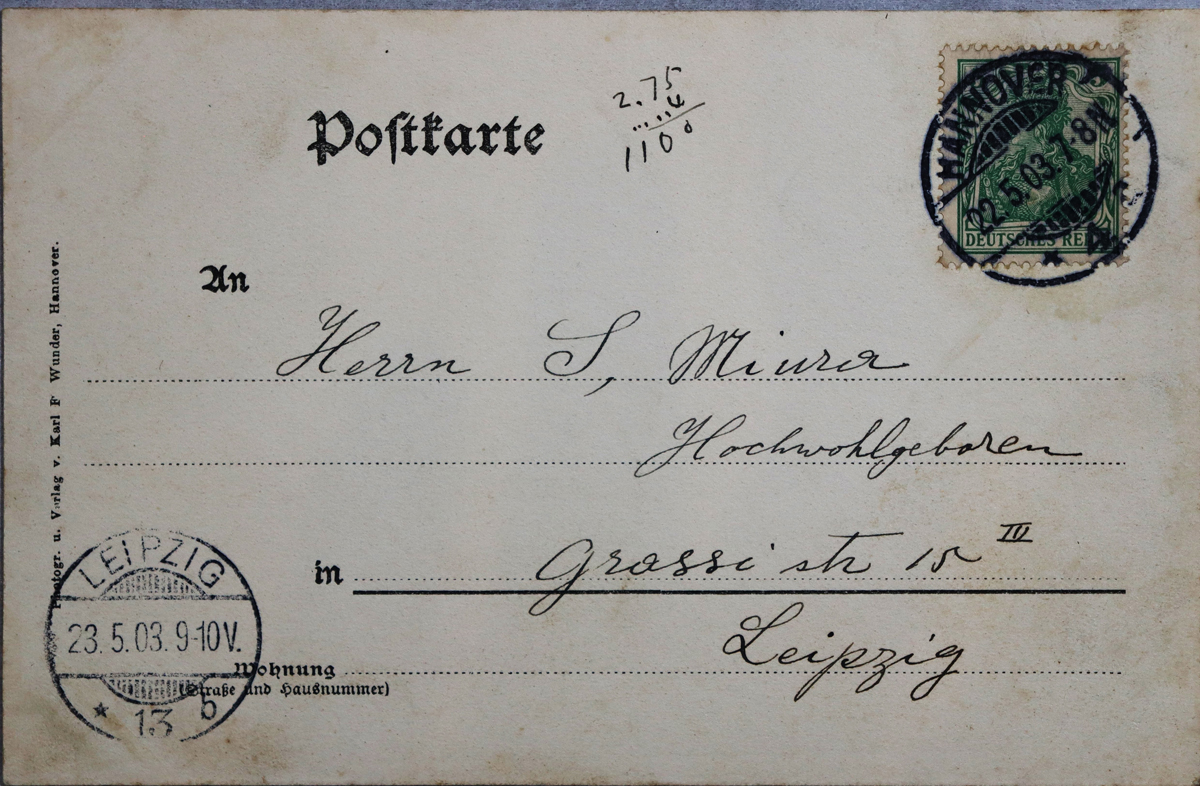 Postkarte
2.75
4
1100
HANNOVER
22.5.03.7-8N.
* 4
DEUTSCHES REICH
An
Herrn S, Miura
Hochwohlgeboren
in Grassi str 15 III
Leipzig
Wohnung
(Straße und Hausnummer)
LEIPZIG
23.5.03.9-10V.
* 13 b
Photogr. u. Verlag v. Karl F Wunder, Hannover.